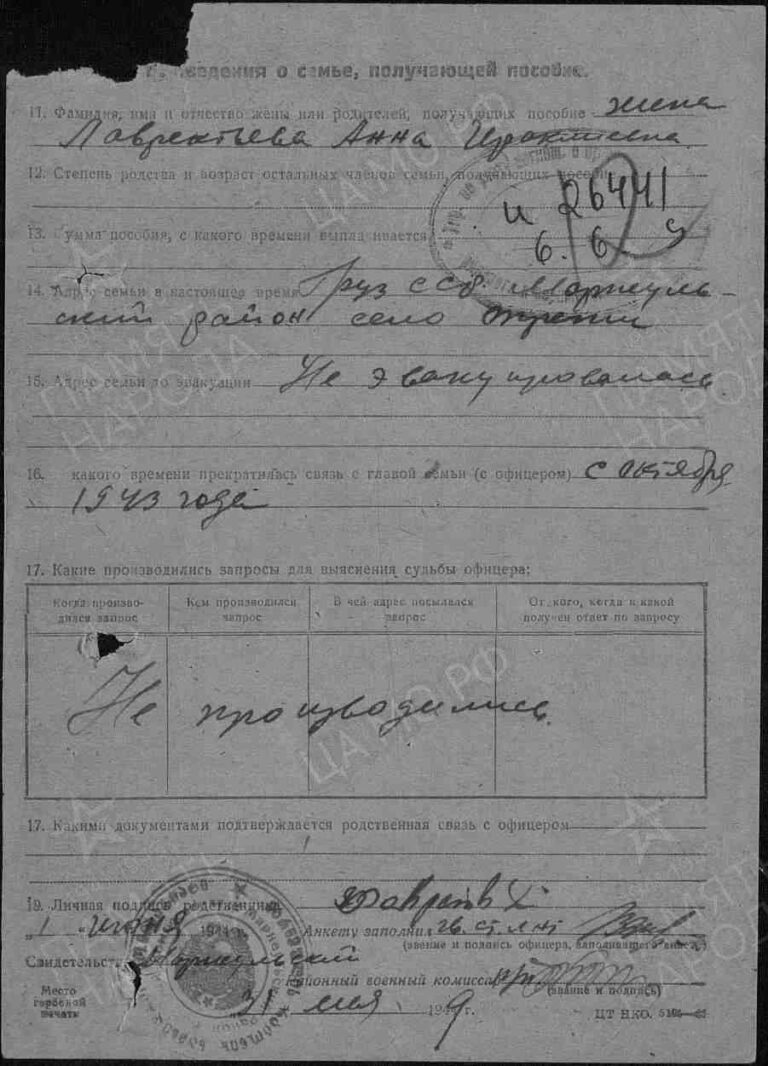 ведения о семье, получающей пособие.
11. Фамилия, имя и отчество жены или родителей, получающих пособие жена
Лаврентьева Анна
12. Степень родства и возраст остальных членов семьи, получающих пособие
и 26441
6. 6
13. Сумма пособия, с какого времени выплачивается
14. Адрес семьи в настоящее время Груз ССР Марнеуль-
ский район село
15. Адрес семьи до эвакуации Не эвакуировалась
16. какого времени прекратилась связь с главой семьи (с офицером) с октября
1943 года
17. Какие производились запросы для выяснения судьбы офицера:
Когда произво-
дился запрос
Кем производился
запрос
В чей адрес посылался
запрос
От кого, когда и какой
получен ответ по запросу
Не производились
17. Какими документами подтверждается родственная связь с офицером
19. Личная подпись родственника
„1 “ июня 194 г. Анкету заполнил гв. ст. л-нт
(звание и подпись офицера, заполнявшего анкету)
Свидетельст Марнеульский
районный военный комиссар
(звание и подпись)
Место
гербовой
печати
31 мая 1949 г.
ЦТ НКО.
ЦА МО РФ
ПАМЯТЬ
НАРОДА